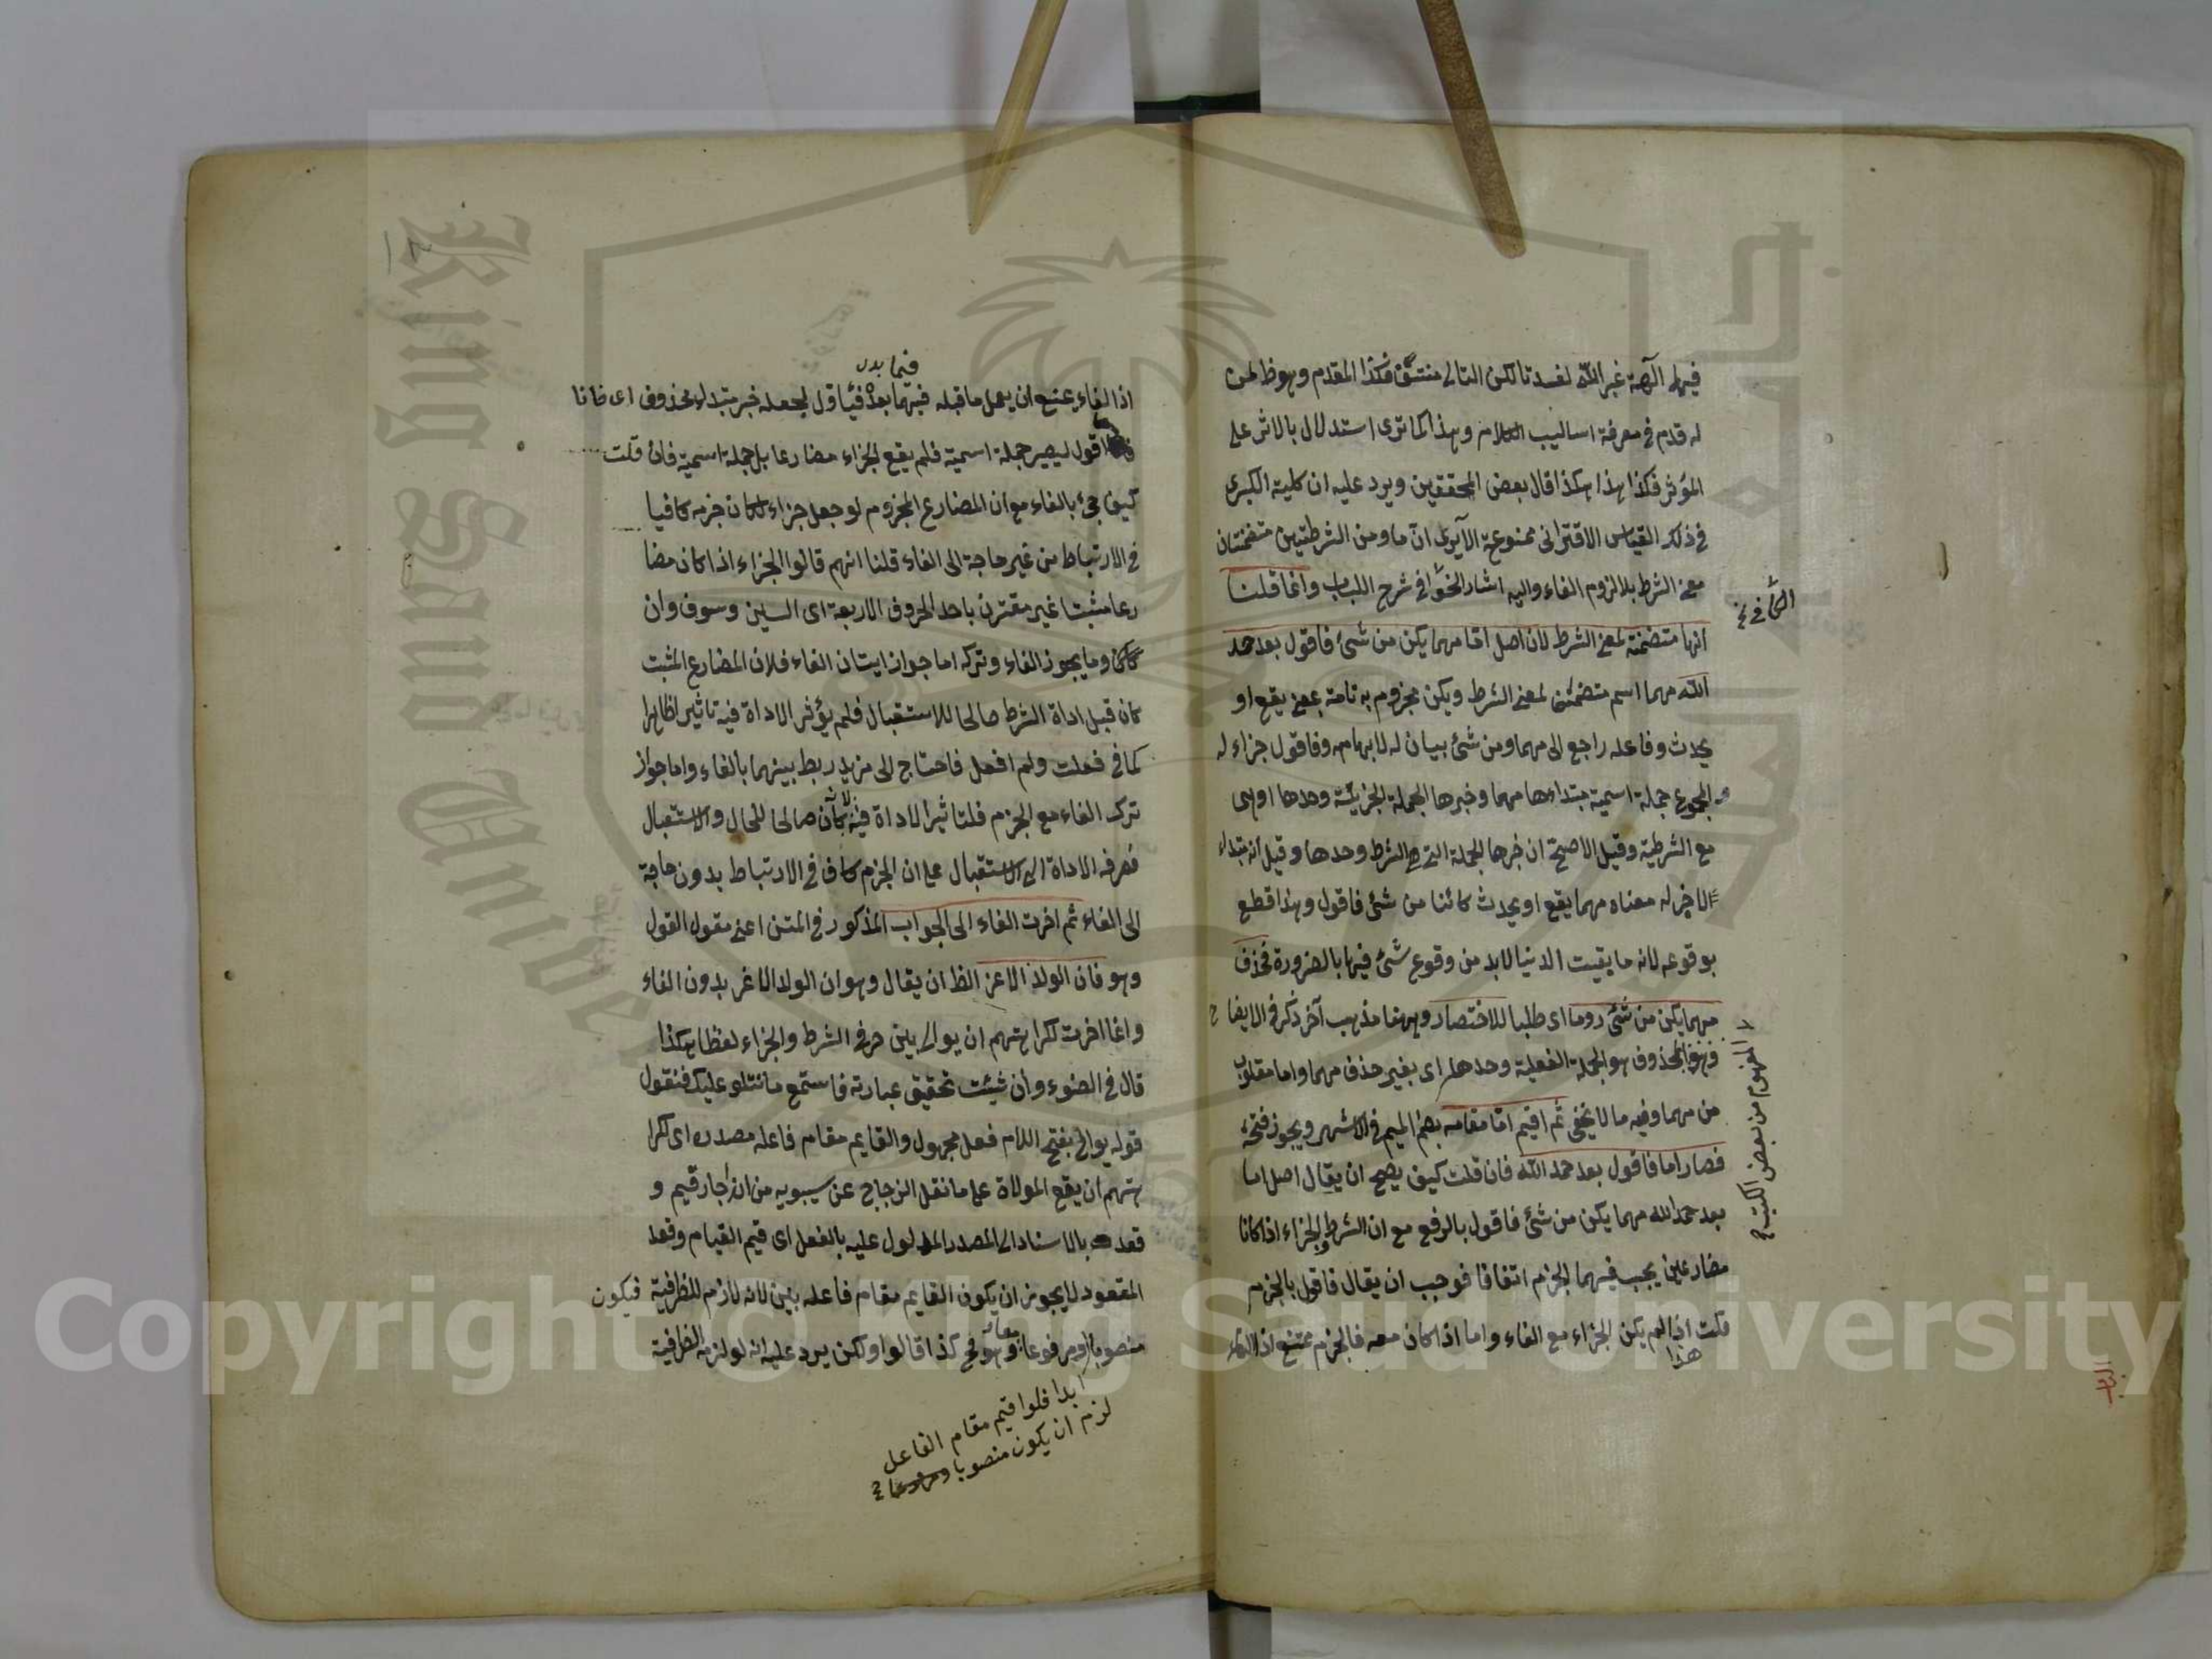 فيهما آلهة غير الله لفسدتا لكن التالى منتف فكذا المقدم وهو ظ لمن
له قدم فى معرفة اساليب الكلام وهذا كما ترى استدلال بالاثر على
المؤثر فكذا هذا هكذا قال بعض المحققين ويرد عليه ان كلية الكبرى
فى ذلك القياس الاقترانى ممنوعة الا يرى ان ما ومن الشرطيتين متضمنتان
معنى الشرط بلا لزوم الفاء واليه اشار فى شرح اللباب وانما قلنا
انها متضمنة لمعنى الشرط لان اصل اما مهما يكن من شئ فاقول بعد حمد
الله مهما اسم متضمن لمعنى الشرط ويكن مجزوم به تامة بمعنى يقع او
يحدث وفاعله راجع الى مهما ومن شئ بيان له لابهامه وفاقول جزاء له
والمجموع جملة اسمية مبتداءها مهما وخبرها الجملة الجزئية وحدها او هى
مع الشرطية وقيل الاصح ان خبرها الجملة التى هى الشرط وحدها وقيل انه مبتداء
لا خبر له معناه مهما يقع او يحدث كائنا من شئ فاقول وهذا قطع
بوقوعه لانه ما بقيت الدنيا لابد من وقوع شئ فيها بالضرورة فحذف
مهما يكن من شئ روما اى طلبا للاختصار وههنا مذهب آخر ذكر فى الايضاح
المحذوف هو الجملة الفعلية وحدها اى بغير حذف مهما واما مقلوب
من مهما وفيه ما لا يخفى ثم اقيم اما مقامه بضم الميم فى الاشهر ويجوز فتحه
فصار اما فاقول بعد حمد الله فان قلت كيف يصح ان يقال اصل اما
بعد حمد الله مهما يكن من شئ فاقول بالرفع مع ان الشرط والجزاء اذا كانا
مضارعين يجب فيهما الجزم اتفاقا فوجب ان يقال فاقول بالجزم
قلت هذا اذا لم يكن الجزاء مع الفاء واما اذا كان معه فالجزم ممتنع
المفهوم من بعض الكتب
فيما بعد
اذا الفاء يمنع ان يعمل ما قبله فيما بعده فيأول بجعله خبر مبتداء محذوف اى فانا
اقول ليصير جملة اسمية فلم يقع الجزاء مضارعا بل جملة اسمية فان قلت
كيف جئ بالفاء مع ان المضارع المجزوم لو جعل جزاء لكان جزمه كافيا
فى الارتباط من غير حاجة الى الفاء قلنا انهم قالوا الجزاء اذا كان مضا
رعا مثبتا غير مقترن باحد الحروف الاربعة اى السين وسوف ولن
وما يجوز الفاء وتركه اما جواز ايتان الفاء فلان المضارع المثبت
كان قبل اداة الشرط صالحا للاستقبال فلم يؤثر الاداة فيه تاثيرا ظاهرا
كما فى فعلت ولم افعل فاحتاج الى مزيد ربط بينهما بالفاء واما جواز
ترك الفاء مع الجزم فلتاثير الاداة فيه لانه كان صالحا للحال والاستقبال
فصرفه الاداة الى الاستقبال على ان الجزم كاف فى الارتباط بدون حاجة
الى الفاء ثم اخرت الفاء الى الجواب المذكور فى المتن اعنى مقول القول
وهو فان الولد الاعز الظ ان يقال وهو ان الولد الاغر بدون الفاء
وانما اخرت لكراهتهم ان يوالى بين حرفى الشرط والجزاء لفظا هكذا
قال فى الضوء وان شيئت تحقيق عبارته فاستمع ما نتلو عليك فنقول
قوله يوالى بفتح اللام فعل مجهول والقايم مقام فاعله مصدره اى لكرا
هتهم ان يقع الموالاة على ما نقل الزجاج عن سيبويه من انه اجاز قيم و
قعد بالاسناد الى المصدر المدلول عليه بالفعل اى قيم القيام وقعد
المقعود لا يجوز ان يكون القايم مقام فاعله بين لانه لازم للظرفية فيكون
منصوبا ومرفوعا معا وهو مح كذا قالوا ولكن يرد عليه انه لو لزمه الظرفية
ابدا فلو اقيم مقام الفاعل
لزم ان يكون منصوبا ومرفوعا
King Saud Univer
Copyright © King Saud University